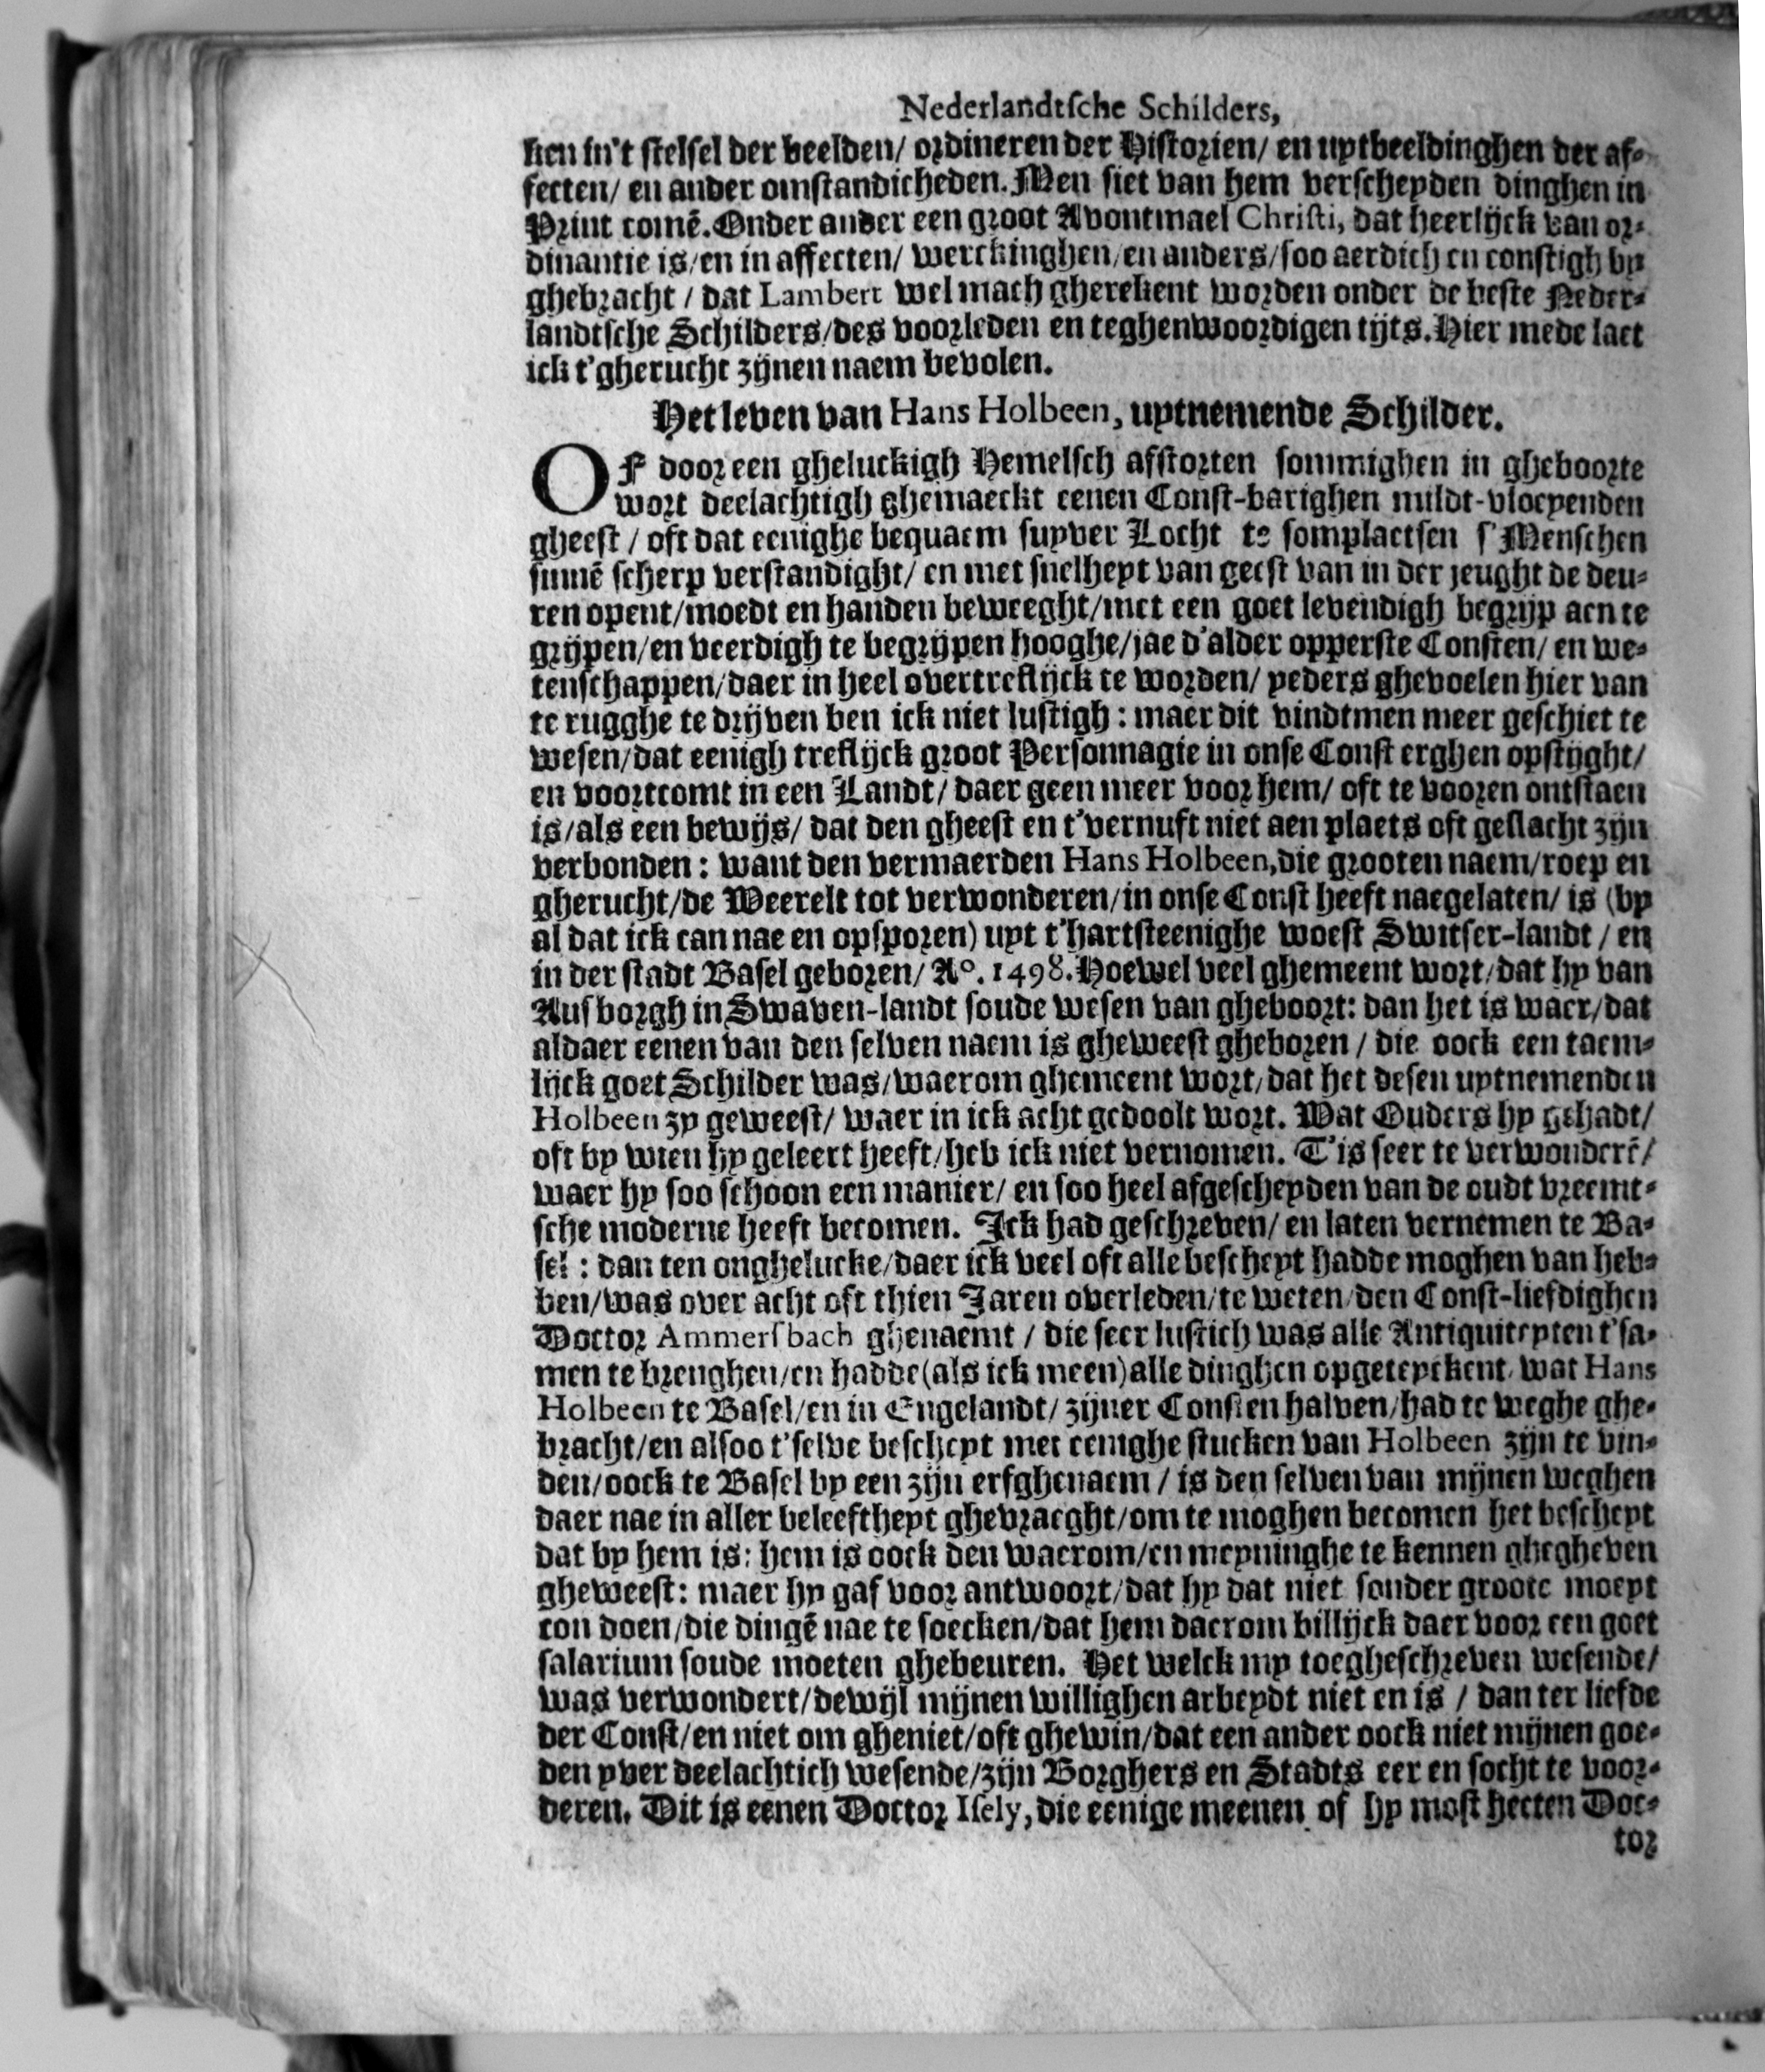 Nederlandtsche Schilders,
ken in't stelsel der beelden/ ordineren der Historien/ en uytbeeldinghen der af-
fecten/ en ander omstandicheden. Men siet van hem verscheyden dinghen in
Print comẽ. Onder ander een groot Avontmael Christi, dat heerlijck van or-
dinantie is/en in affecten/ werckinghen/en anders/soo aerdich en constigh by
ghebracht / dat Lambert wel mach gherekent worden onder de beste Neder-
landtsche Schilders/des voorleden en teghenwoordigen tijts. Hier mede laet
ick t'gherucht zijnen naem bevolen.
Het leven van Hans Holbeen, uytnemende Schilder.
OF door een gheluckigh Hemelsch afstorten sommighen in gheboorte
wort deelachtigh ghemaeckt eenen Const-barighen mildt-vloeyenden
gheest / oft dat eenighe bequaem suyver Locht te somplaetsen s'Menschen
sinnẽ scherp verstandight/ en met snelheyt van geest van in der jeught de deu-
ren opent/moedt en handen beweeght/met een goet levendigh begrijp aen te
grijpen/en veerdigh te begrijpen hooghe/jae d'alder opperste Consten/ en we-
tenschappen/daer in heel overtreflijck te worden/ yeders ghevoelen hier van
te rugghe te drijven ben ick niet lustigh : maer dit vindtmen meer geschiet te
wesen/dat eenigh treflijck groot Personnagie in onse Const erghen opstijght/
en voortcomt in een Landt/ daer geen meer voor hem/ oft te vooren ontstaen
is/als een bewijs/ dat den gheest en t'vernuft niet aen plaets oft geslacht zijn
verbonden : want den vermaerden Hans Holbeen, die grooten naem/roep en
gherucht/de Weerelt tot verwonderen/in onse Const heeft naegelaten/ is (by
al dat ick can nae en opsporen) uyt t'hartsteenighe woest Switser-landt / en
in der stadt Basel geboren/ Aº. 1498. Hoewel veel ghemeent wort/dat hy van
Ausborgh in Swaven-landt soude wesen van gheboort: dan het is waer/dat
aldaer eenen van den selven naem is gheweest gheboren / die oock een taem-
lijck goet Schilder was/waerom ghemeent wort/dat het desen uytnemenden
Holbeen zy geweest/ waer in ick acht gedoolt wort. Wat Ouders hy gehadt/
oft by wien hy geleert heeft/heb ick niet vernomen. T'is seer te verwonderẽ/
waer hy soo schoon een manier/ en soo heel afgescheyden van de oudt vreemt-
sche moderne heeft becomen. Ick had geschreven/ en laten vernemen te Ba-
sel : dan ten onghelucke/daer ick veel oft alle bescheyt hadde moghen van heb-
ben/was over acht oft thien Jaren overleden/te weten/den Const-liefdighen
Doctor Ammersbach ghenaemt / die seer lustich was alle Antiquiteyten t'sa-
men te brenghen/en hadde (als ick meen) alle dinghen opgeteyckent/ wat Hans
Holbeen te Basel/en in Engelandt/ zijner Consten halven/had te weghe ghe-
bracht/en alsoo t'selve bescheyt met eenighe stucken van Holbeen zijn te vin-
den/oock te Basel by een zijn erfghenaem / is den selven van mijnen weghen
daer nae in aller beleeftheyt ghevraeght/om te moghen becomen het bescheyt
dat by hem is: hem is oock den waerom/en meyninghe te kennen ghegheven
gheweest: maer hy gaf voor antwoort/dat hy dat niet sonder groote moeyt
con doen/die dingẽ nae te soecken/dat hem daerom billijck daer voor een goet
salarium soude moeten ghebeuren. Het welck my toegheschreven wesende/
was verwondert/dewijl mijnen willighen arbeydt niet en is / dan ter liefde
der Const/en niet om gheniet/oft ghewin/dat een ander oock niet mijnen goe-
den yver deelachtich wesende/zijn Borghers en Stadts eer en socht te voor-
deren. Dit is eenen Doctor Isely, die eenige meenen of hy most heeten Doc-
tor